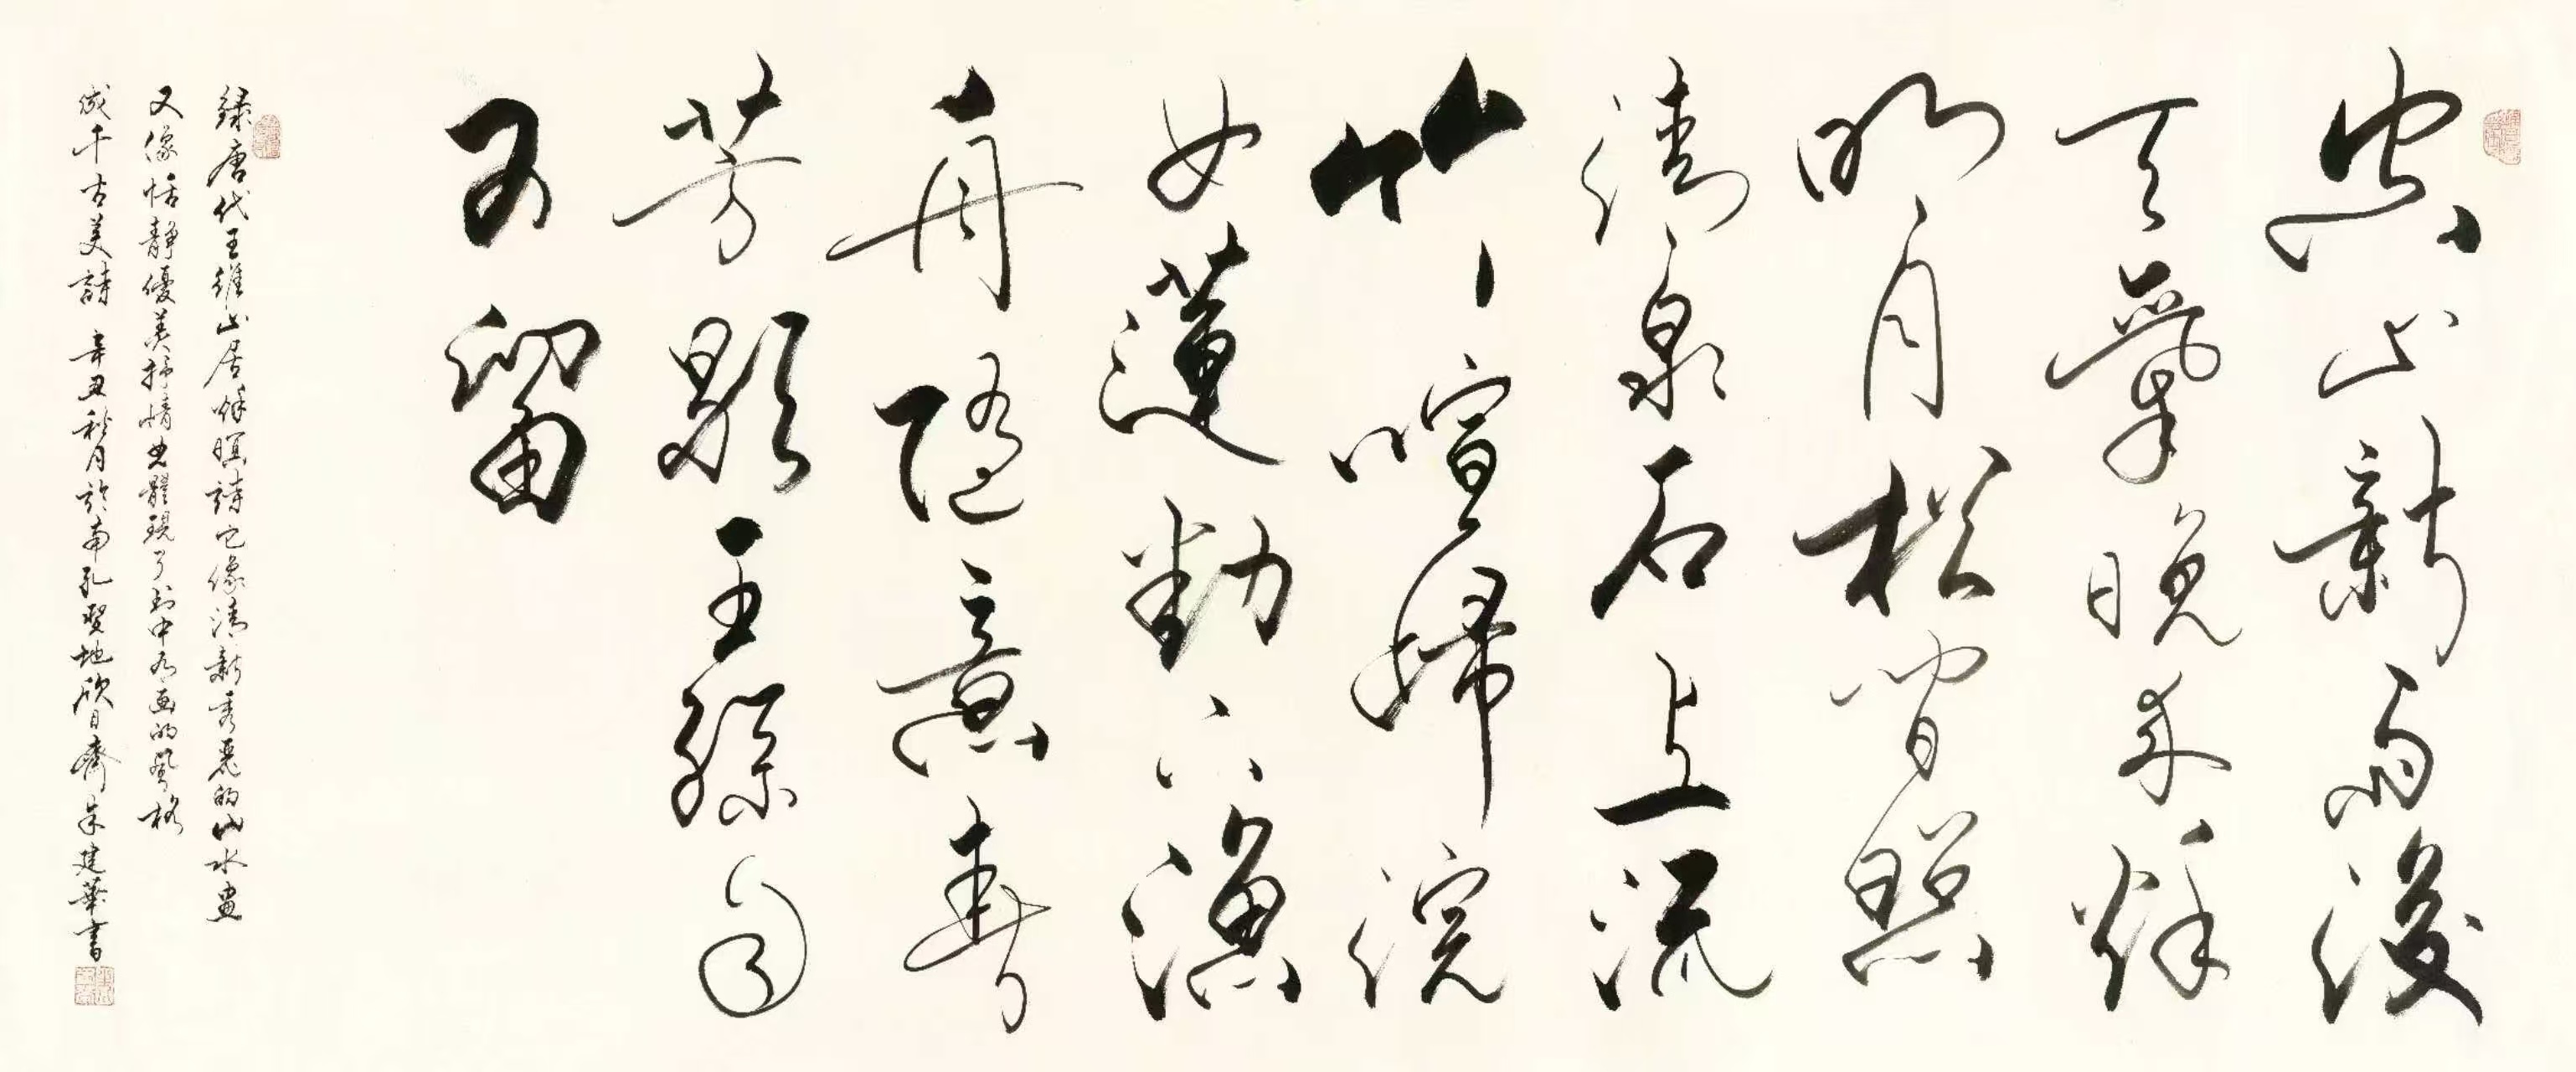 空山新雨後
天氣晚来秋
明月松間照
清泉石上流
竹喧歸浣
女蓮動下漁
舟隨意春
芳歇王孫自
可留
録唐代王維山居秋暝詩它像清新秀麗的山水畫
又像恬靜優美抒情曲體現了詩中有画的風格
成千古美詩 辛丑秋月於南孔聖地欣日齋朱建華書